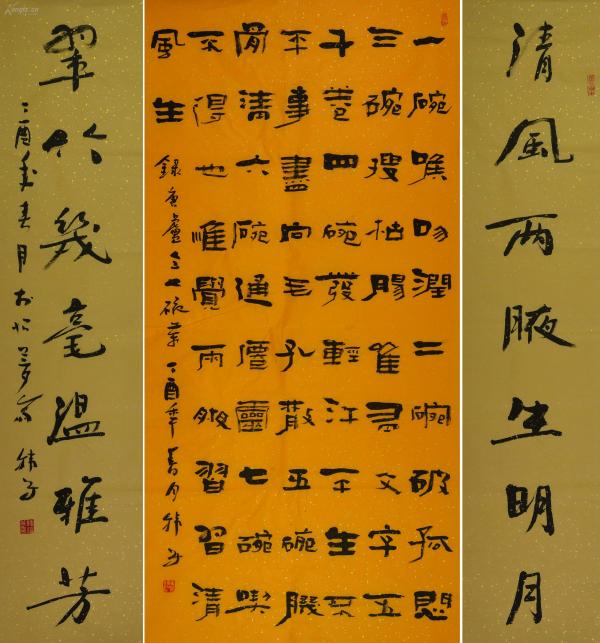 清風两腋生明月
一碗喉吻潤二碗破孤悶
三碗搜枯腸惟有文字五
千卷四碗發輕汗平生不
平事盡向毛孔散五碗肌
骨清六碗通僊靈七碗喫
不得也惟覺兩腋習習清
風生
録唐盧仝七碗茶 丁酉年春月
翠竹幾毫溫雅芳
丁酉年春月